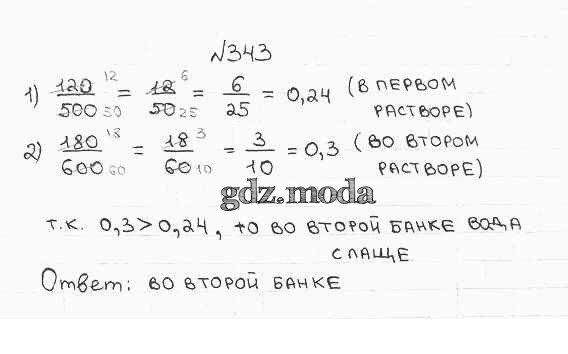 №343
1) 120/500 12/50 = 12/50 6/25 = 6/25 = 0,24 (В ПЕРВОМ
РАСТВОРЕ)
2) 180/600 18/60 = 18/60 3/10 = 3/10 = 0,3 (ВО ВТОРОМ
РАСТВОРЕ)
gdz.moda
т.к. 0,3>0,24, то ВО ВТОРОЙ БАНКЕ ВОДА
СЛАЩЕ
Ответ: ВО ВТОРОЙ БАНКЕ